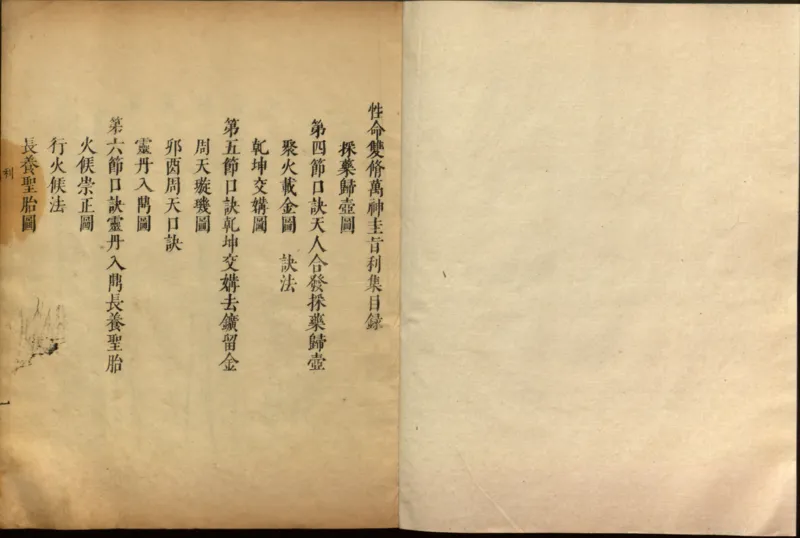 性命雙脩萬神圭旨利集目録
採藥歸壺圖
第四節口訣天人合發採藥歸壺
聚火載金圖 訣法
乾坤交媾圖
第五節口訣乾坤交媾去鑛留金
周天璇璣圖
卯酉周天口訣
靈丹入鼎圖
第六節口訣靈丹入鼎長養聖胎
火候崇正圖
行火候法
長養聖胎圖
利
一